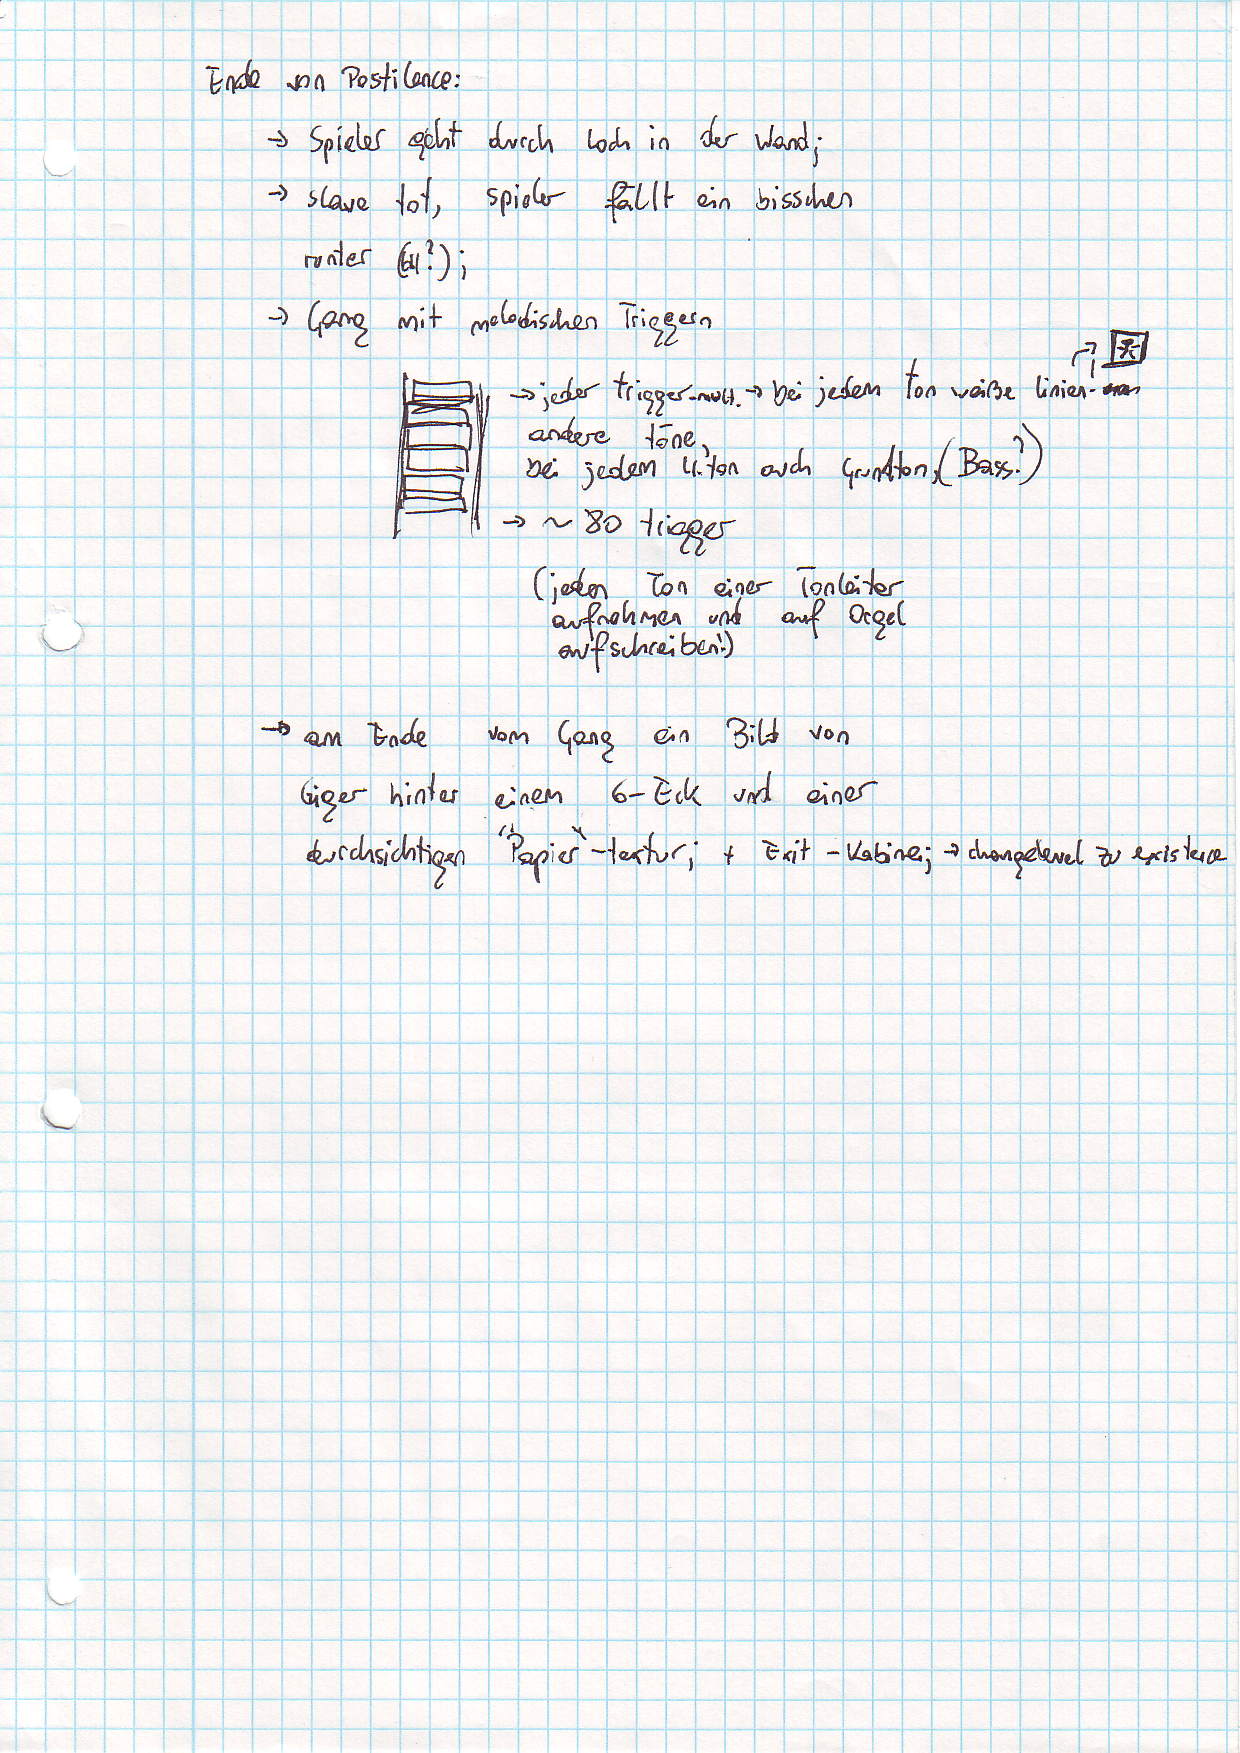 Ende von Pestilence:
→ Spieler geht durch Loch in der Wand;
→ slave tot, spieler fällt ein bisschen
runter (64?);
→ Gang mit melodischen Triggern
→ jeder trigger-mult. → bei jedem Ton weiße linien-
andere töne,
bei jedem 4. ton auch Grundton, (Bass?)
→ ~ 80 trigger
(jeden Ton einer Tonleiter
aufnehmen und auf Orgel
aufschreiben!)
→ am Ende vom Gang ein Bild von
Giger hinter einem 6-Eck und einer
durchsichtigen "Papier"-textur; + Exit-Kabine; → changelevel zu existence